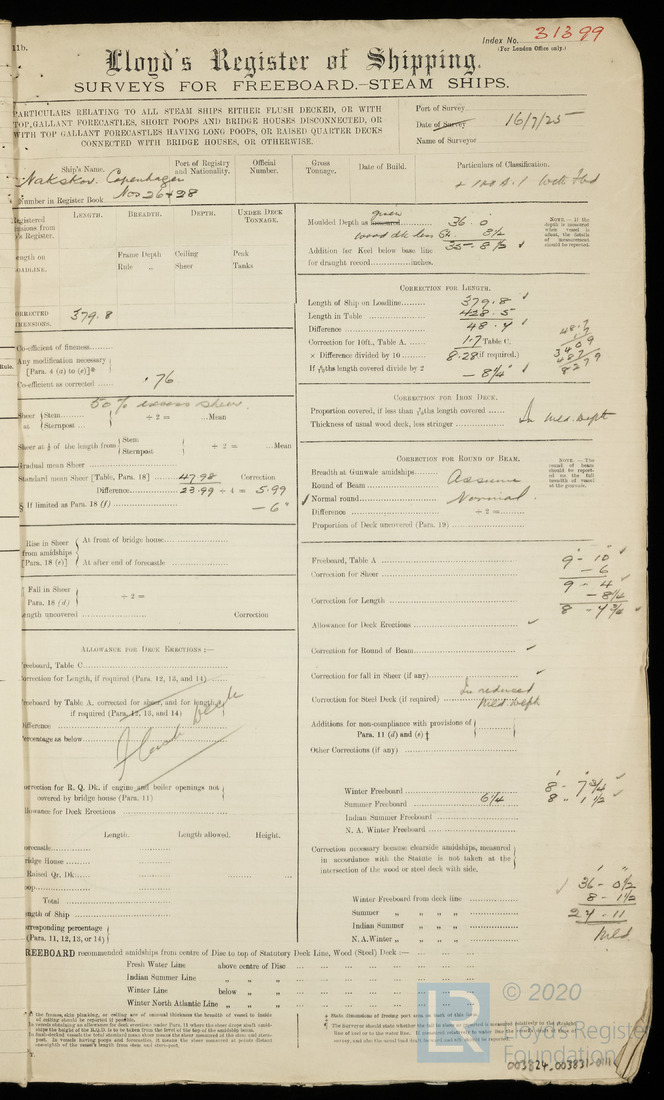 11b.
Index No. 31399
(For London Office only.)
Lloyd's Register of Shipping.
SURVEYS FOR FREEBOARD.—STEAM SHIPS.
PARTICULARS RELATING TO ALL STEAM SHIPS EITHER FLUSH DECKED, OR WITH
TOP GALLANT FORECASTLES, SHORT POOPS AND BRIDGE HOUSES DISCONNECTED, OR
WITH TOP GALLANT FORECASTLES HAVING LONG POOPS, OR RAISED QUARTER DECKS
CONNECTED WITH BRIDGE HOUSES, OR OTHERWISE.
Port of Survey
Date of Survey 16/7/25
Name of Surveyor
Ship's Name. Port of Registry and Nationality. Official Number. Gross Tonnage. Date of Build. Particulars of Classification.
Nakskov. Copenhagen
+ 100 A.1 With Fbd
Number in Register Book Nos 26428
Registered LENGTH. BREADTH. DEPTH. UNDER DECK TONNAGE.
Frame Depth Ceiling Peak
Rule „ Sheer Tanks
CORRECTED DIMENSIONS. 379.8
Co-efficient of fineness
Any modification necessary
[Para. 4 (a) to (e)]*
Co-efficient as corrected .76
50% excess sheer
Sheer at Stem
Sternpost ÷ 2 = Mean
Sheer at ⅛ of the length from Stem
Sternpost ÷ 2 = Mean
Gradual mean Sheer
Standard mean Sheer [Table, Para. 18] 47.98 Correction
Difference 23.99 ÷ 4 = 5.99
§ If limited as Para. 18 (f) – 6"
Rise in Sheer from amidships [Para. 18 (e)]
At front of bridge house
At after end of forecastle
Fall in Sheer
Para. 18 (d) ÷ 2 =
Length uncovered Correction
ALLOWANCE FOR DECK ERECTIONS:—
Freeboard, Table C
Correction for Length, if required (Para. 12, 13, and 14)
Freeboard by Table A, corrected for sheer, and for length,
if required (Para. 12, 13, and 14)
Difference
Percentage as below
Flush Deck
Correction for R. Q. Dk. if engine and boiler openings not
covered by bridge house (Para. 11)
Allowance for Deck Erections
Length. Length allowed. Height.
Forecastle
Bridge House
Raised Qr. Dk.
Poop
Total
Length of Ship
Corresponding percentage
(Para. 11, 12, 13, or 14)
Moulded Depth as given 36 . 0
wood dk less St. 3½
35 – 8½
Addition for Keel below base line
for draught record inches.
NOTE.—If the depth is measured when vessel is afloat, the details of measurement should be reported.
CORRECTION FOR LENGTH.
Length of Ship on Loadline 379.8
Length in Table 428.5
Difference 48.7
Correction for 10ft., Table A. 1.7 Table C.
× Difference divided by 10 8.28 (if required.)
If ths length covered divide by 2 – 8¼
48.7
1.7
3409
487
8279
CORRECTION FOR IRON DECK.
Proportion covered, if less than ths length covered
Thickness of usual wood deck, less stringer
In Mld. Depth
CORRECTION FOR ROUND OF BEAM.
Breadth at Gunwale amidships
Round of Beam Assume
Normal round Normal.
Difference ÷ 2 =
Proportion of Deck uncovered (Para. 19)
NOTE.—The round of beam should be reported on the full breadth of vessel at the gunwale.
Freeboard, Table A 9 – 10
Correction for Sheer – 6
9 – 4
Correction for Length – 8¼
8 – 7¾
Allowance for Deck Erections
Correction for Round of Beam
Correction for fall in Sheer (if any)
Correction for Steel Deck (if required) In reduced Mld. Depth
Additions for non-compliance with provisions of
Para. 11 (d) and (e) ‡
Other Corrections (if any)
Winter Freeboard 8 – 7¾
Summer Freeboard 6¼ 8 „ 1½
Indian Summer Freeboard
N. A. Winter Freeboard
Correction necessary because clearside amidships, measured
in accordance with the Statute is not taken at the
intersection of the wood or steel deck with side.
36 – 0½
8 – 1½
27 – 11
Mld
Winter Freeboard from deck line
Summer „ „ „ „
Indian Summer „ „ „ „
N.A. Winter „ „ „ „
FREEBOARD recommended amidships from centre of Disc to top of Statutory Deck Line, Wood (Steel) Deck :—
Fresh Water Line above centre of Disc
Indian Summer Line „ „
Winter Line below „
Winter North Atlantic Line „ „
‡ State dimensions of freeing port area on back of this form.
LR
© 2020
Lloyd's Register
Foundation
003824-003831-0111